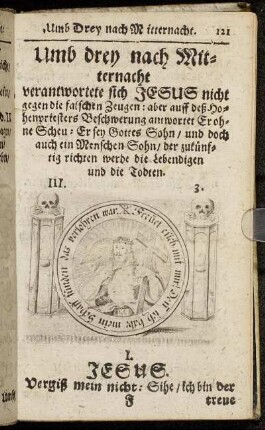 Umb Drey nach Mitternacht. 121
Umb drey nach Mit-
ternacht
verantwortete sich JESUS nicht
gegen die falschen Zeugen: aber auff deß Ho-
henpriesters Beschwerung antwortet Er oh-
ne Scheu: Er sey Gottes Sohn / und doch
auch ein Menschen Sohn / der zukünf-
tig richten werde die Lebendigen
und die Todten.
III. 3.
Frewet euch mit mir: Den ich habe mein Schaff funden das verlohren war.
I.
JESUS.
Vergiß mein nicht: Sihe / ich bin der
F treue